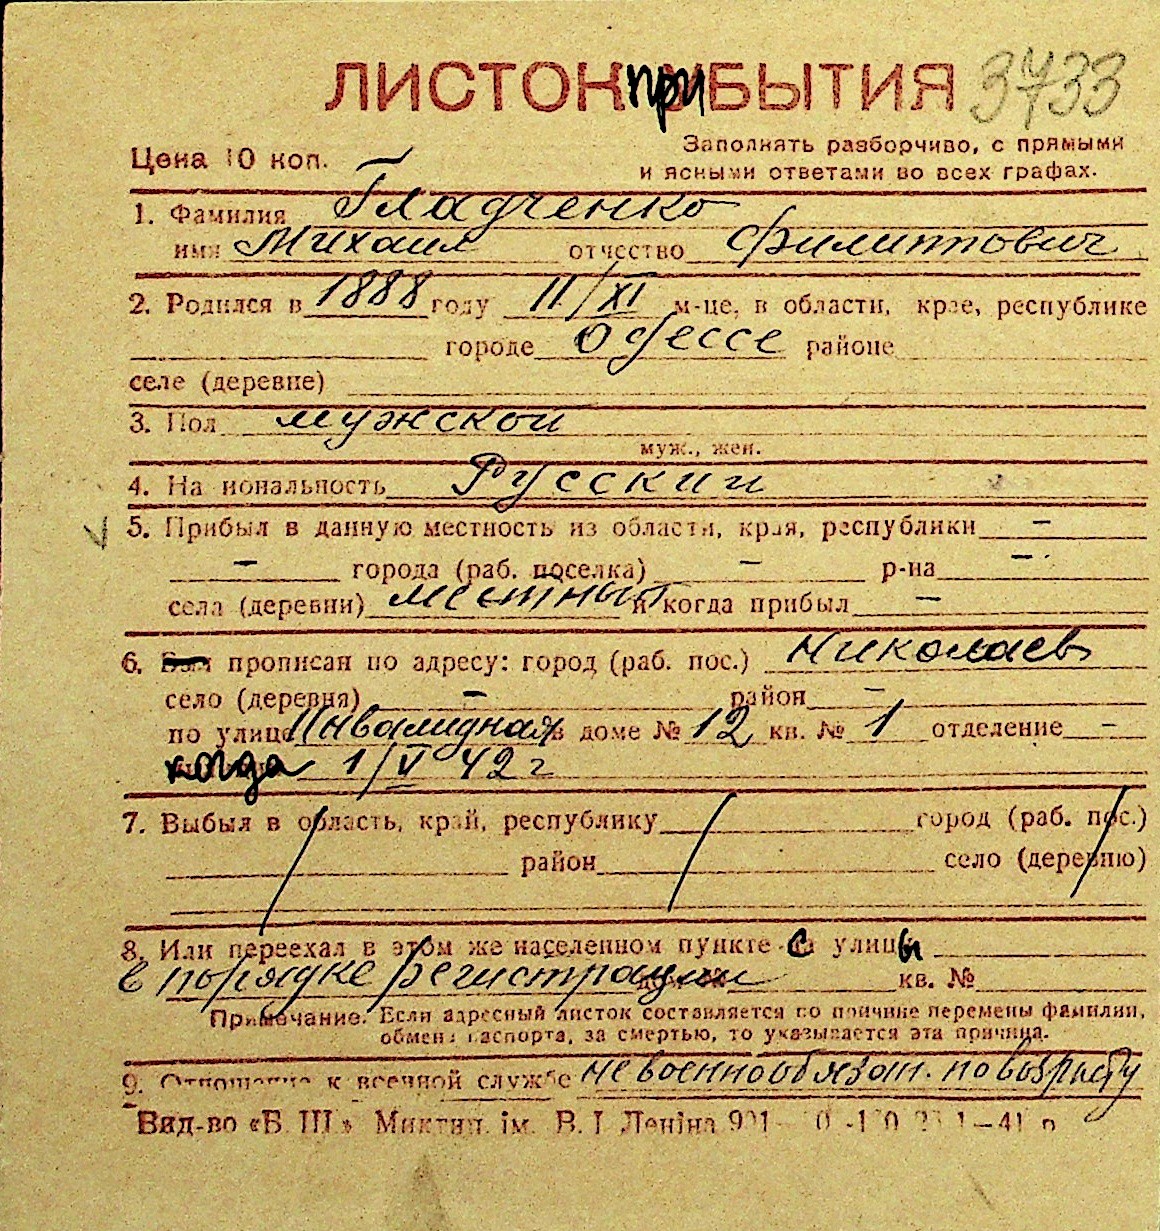 ЛИСТОК ПРИБЫТИЯ 3733
Цена 10 коп.
Заполнять разборчиво, с прямыми
и ясными ответами во всех графах.
1. Фамилия Гладченко
имя Михаил отчество Филиппович
2. Родился в 1888 году 11/XI м-це, в области, крае, республике
городе Одессе районе
селе (деревне)
3. Пол мужской
муж., жен.
4. Национальность Русский
5. Прибыл в данную местность из области, края, республики –
– города (раб. поселка) – р-на –
села (деревни) местный и когда прибыл –
6. прописан по адресу: город (раб. пос.) Николаев
село (деревня) – район –
по улице Инвалидная в доме № 12 кв. № 1 отделение –
когда 1/V 42 г
7. Выбыл в область, край, республику город (раб. пос.)
район село (деревню)
8. Или переехал в этом же населенном пункте с улицы
в порядке регистрации кв. №
Примечание. Если адресный листок составляется по причине перемены фамилии,
обмена паспорта, за смертью, то указывается эта причина.
9. Отношение к военной службе не военнообязан. по возрасту
Вид-во «Б. Ш.» Миктип. ім. В. І. Леніна